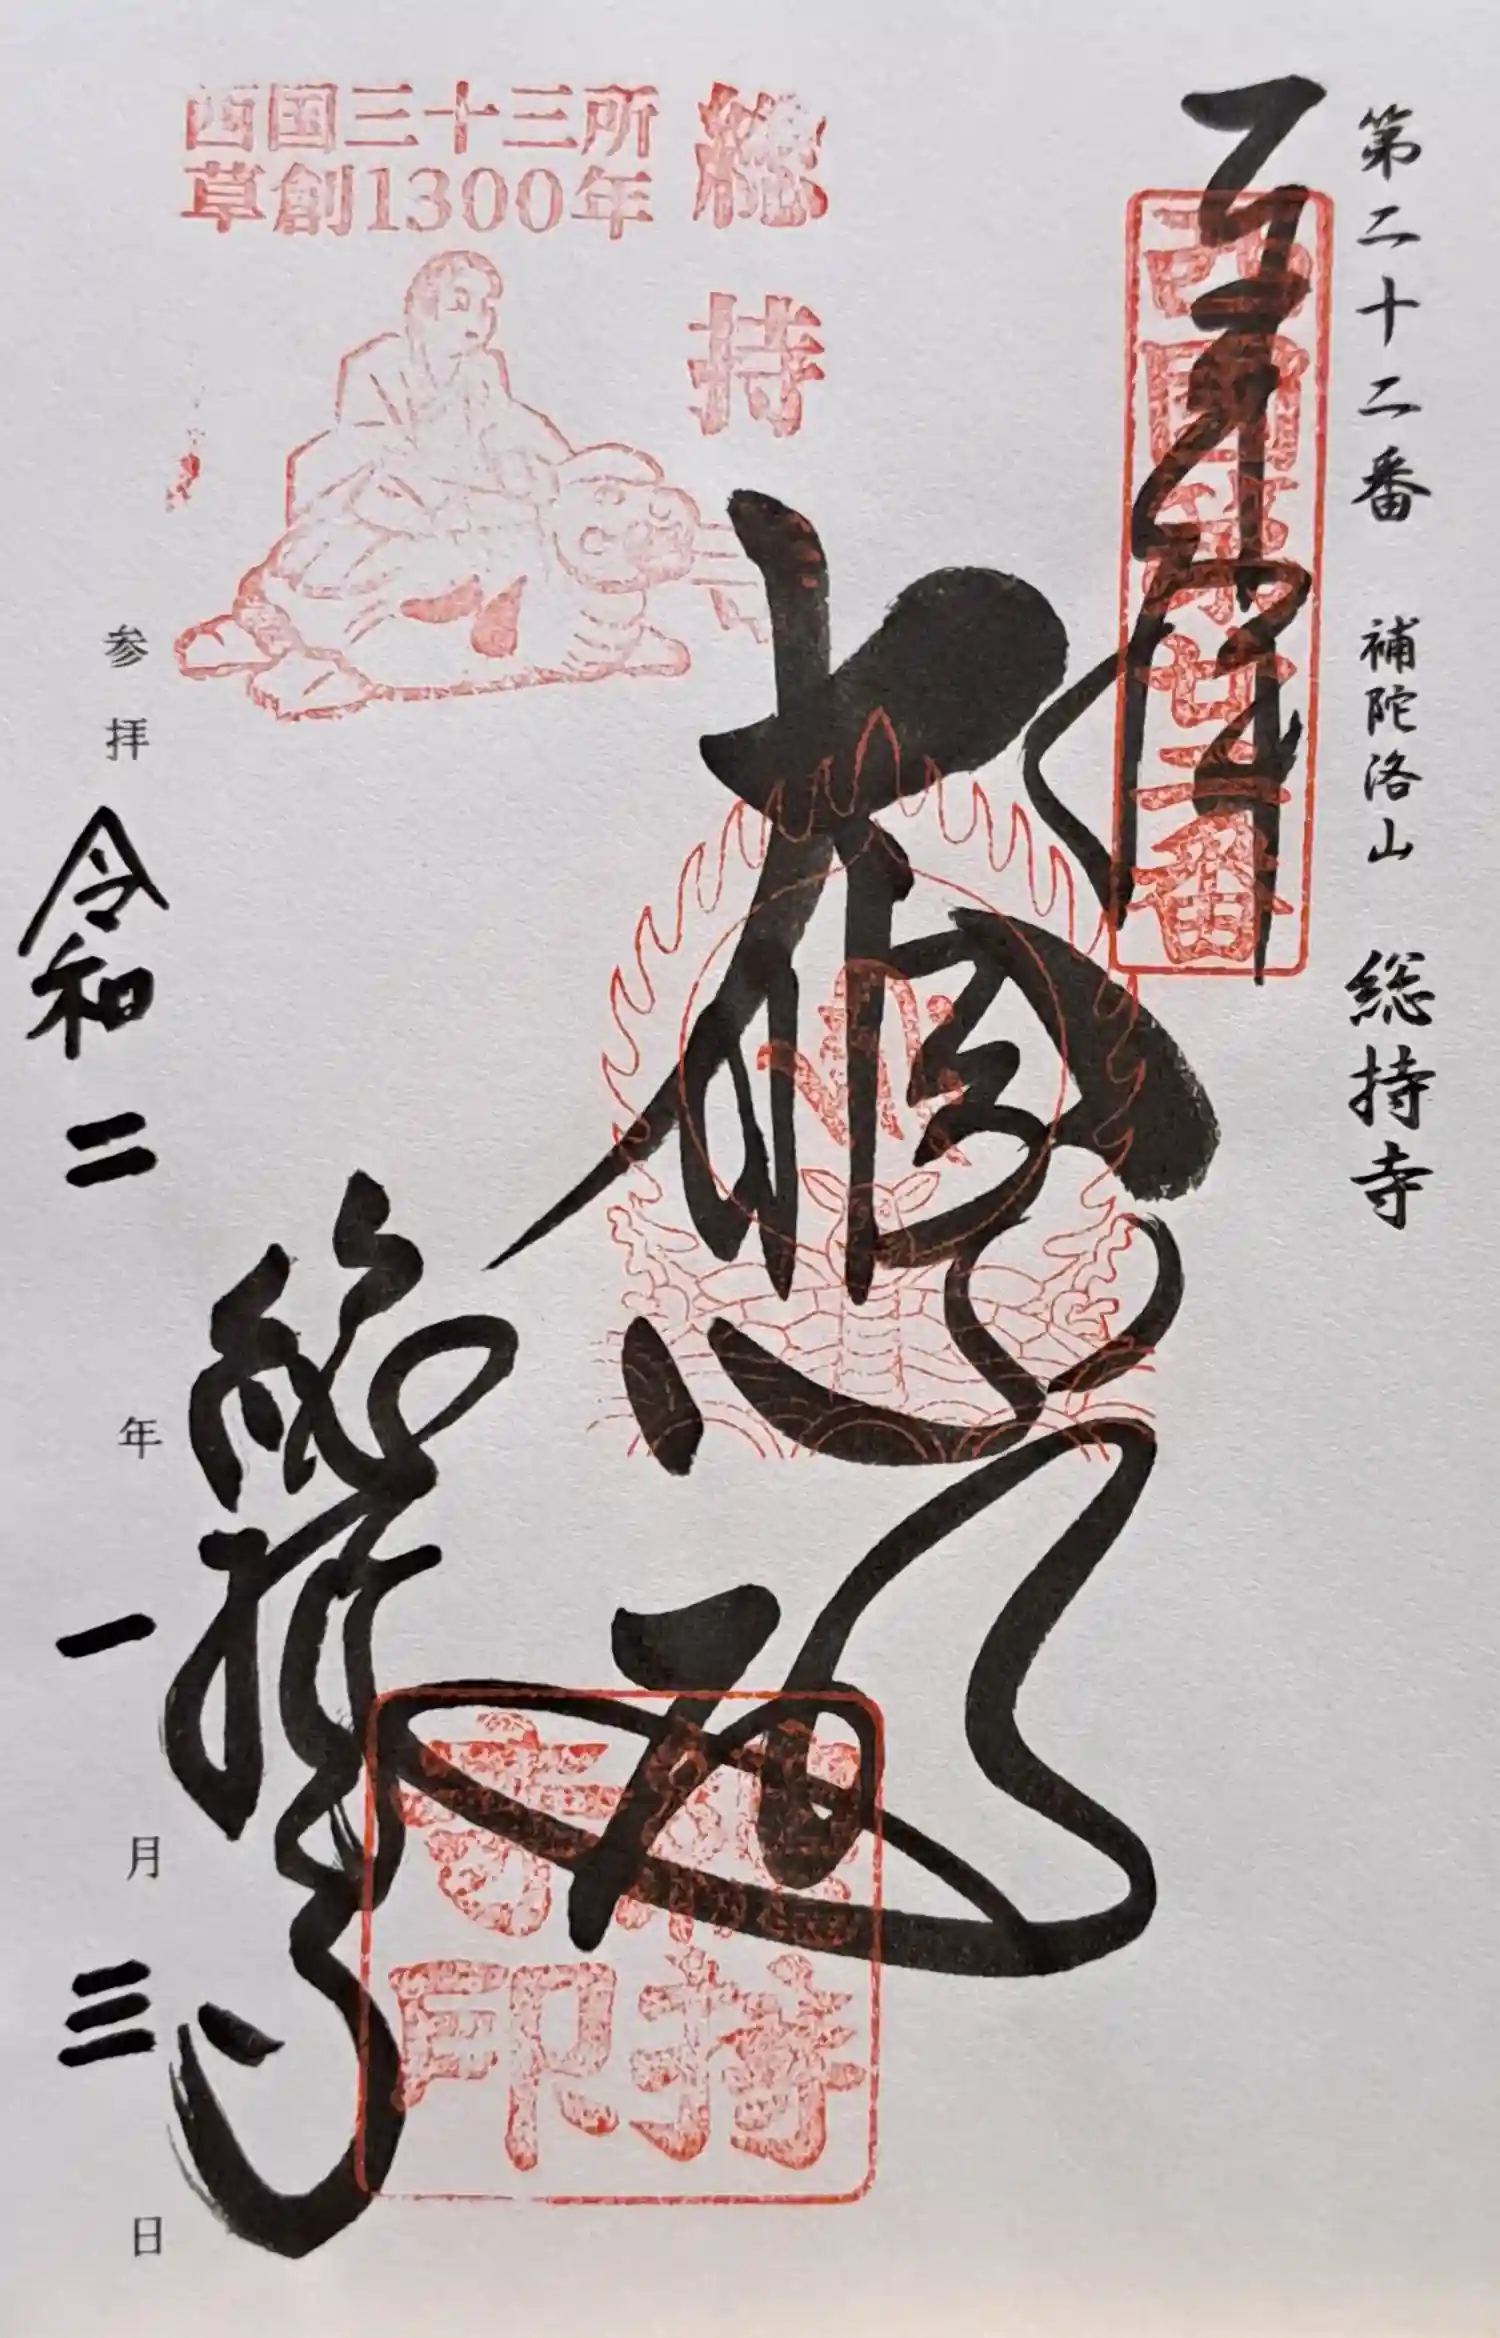 第二十二番 補陀洛山 総持寺
西国第廿二番
奉拝
大悲殿
総持
西国三十三所
草創1300年
総持寺印
総持寺
参拝 令和二年一月三日